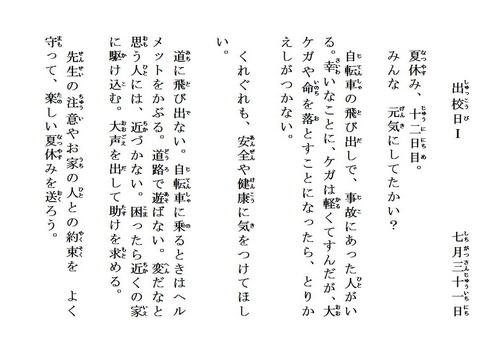 出校日Ⅰ　七月三十一日
夏休み、十二日目。
みんな　元気にしてたかい？
自転車の飛び出しで、事故にあった人がい
る。幸いなことに、ケガは軽くてすんだが、大
ケガや命を落とすことになったら、とりか
えしがつかない。
くれぐれも、安全や健康に気をつけてほし
い。
道に飛び出ない。自転車に乗るときはヘル
メットをかぶる。道路で遊ばない。変だなと
思う人には、近づかない。困ったら近くの家
に駆け込む。大声を出して助けを求める。
先生の注意やお家の人との約束を　よく
守って、楽しい夏休みを送ろう。